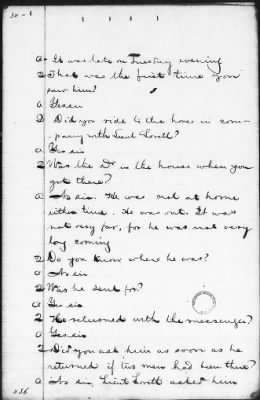 A It was late on Tuesday evening
Q That was the first time you
saw him?
A Yes sir
Q Did you ride to the house in com-
pany with Lieut Lovett?
A Yes sir
Q Was the Dr in the house when you
got there?
A No sir. He was not at home
either time. He was out. It was
not very far, for he was not very
long coming
Q Do you know where he was?
A No sir
Q Was he sent for?
A Yes sir
Q He returned with the messenger?
A Yes sir
Q Did you ask him as soon as he
returned if two men had been there?
A No sir, Lieut Lovett asked him